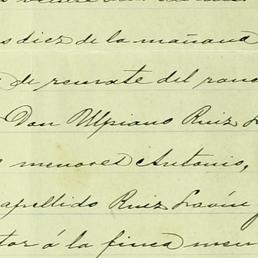 s diez de la mañana
de remate del ran
Don Ulpiano Ruiz L
s menores Antonio,
apellido Ruiz Lavín y
tor á la finca men